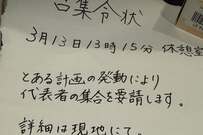 召集令状
3月13日13時15分 休憩室
とある計画の発動により
代表者の集合を要請します。
詳細は現地にて。